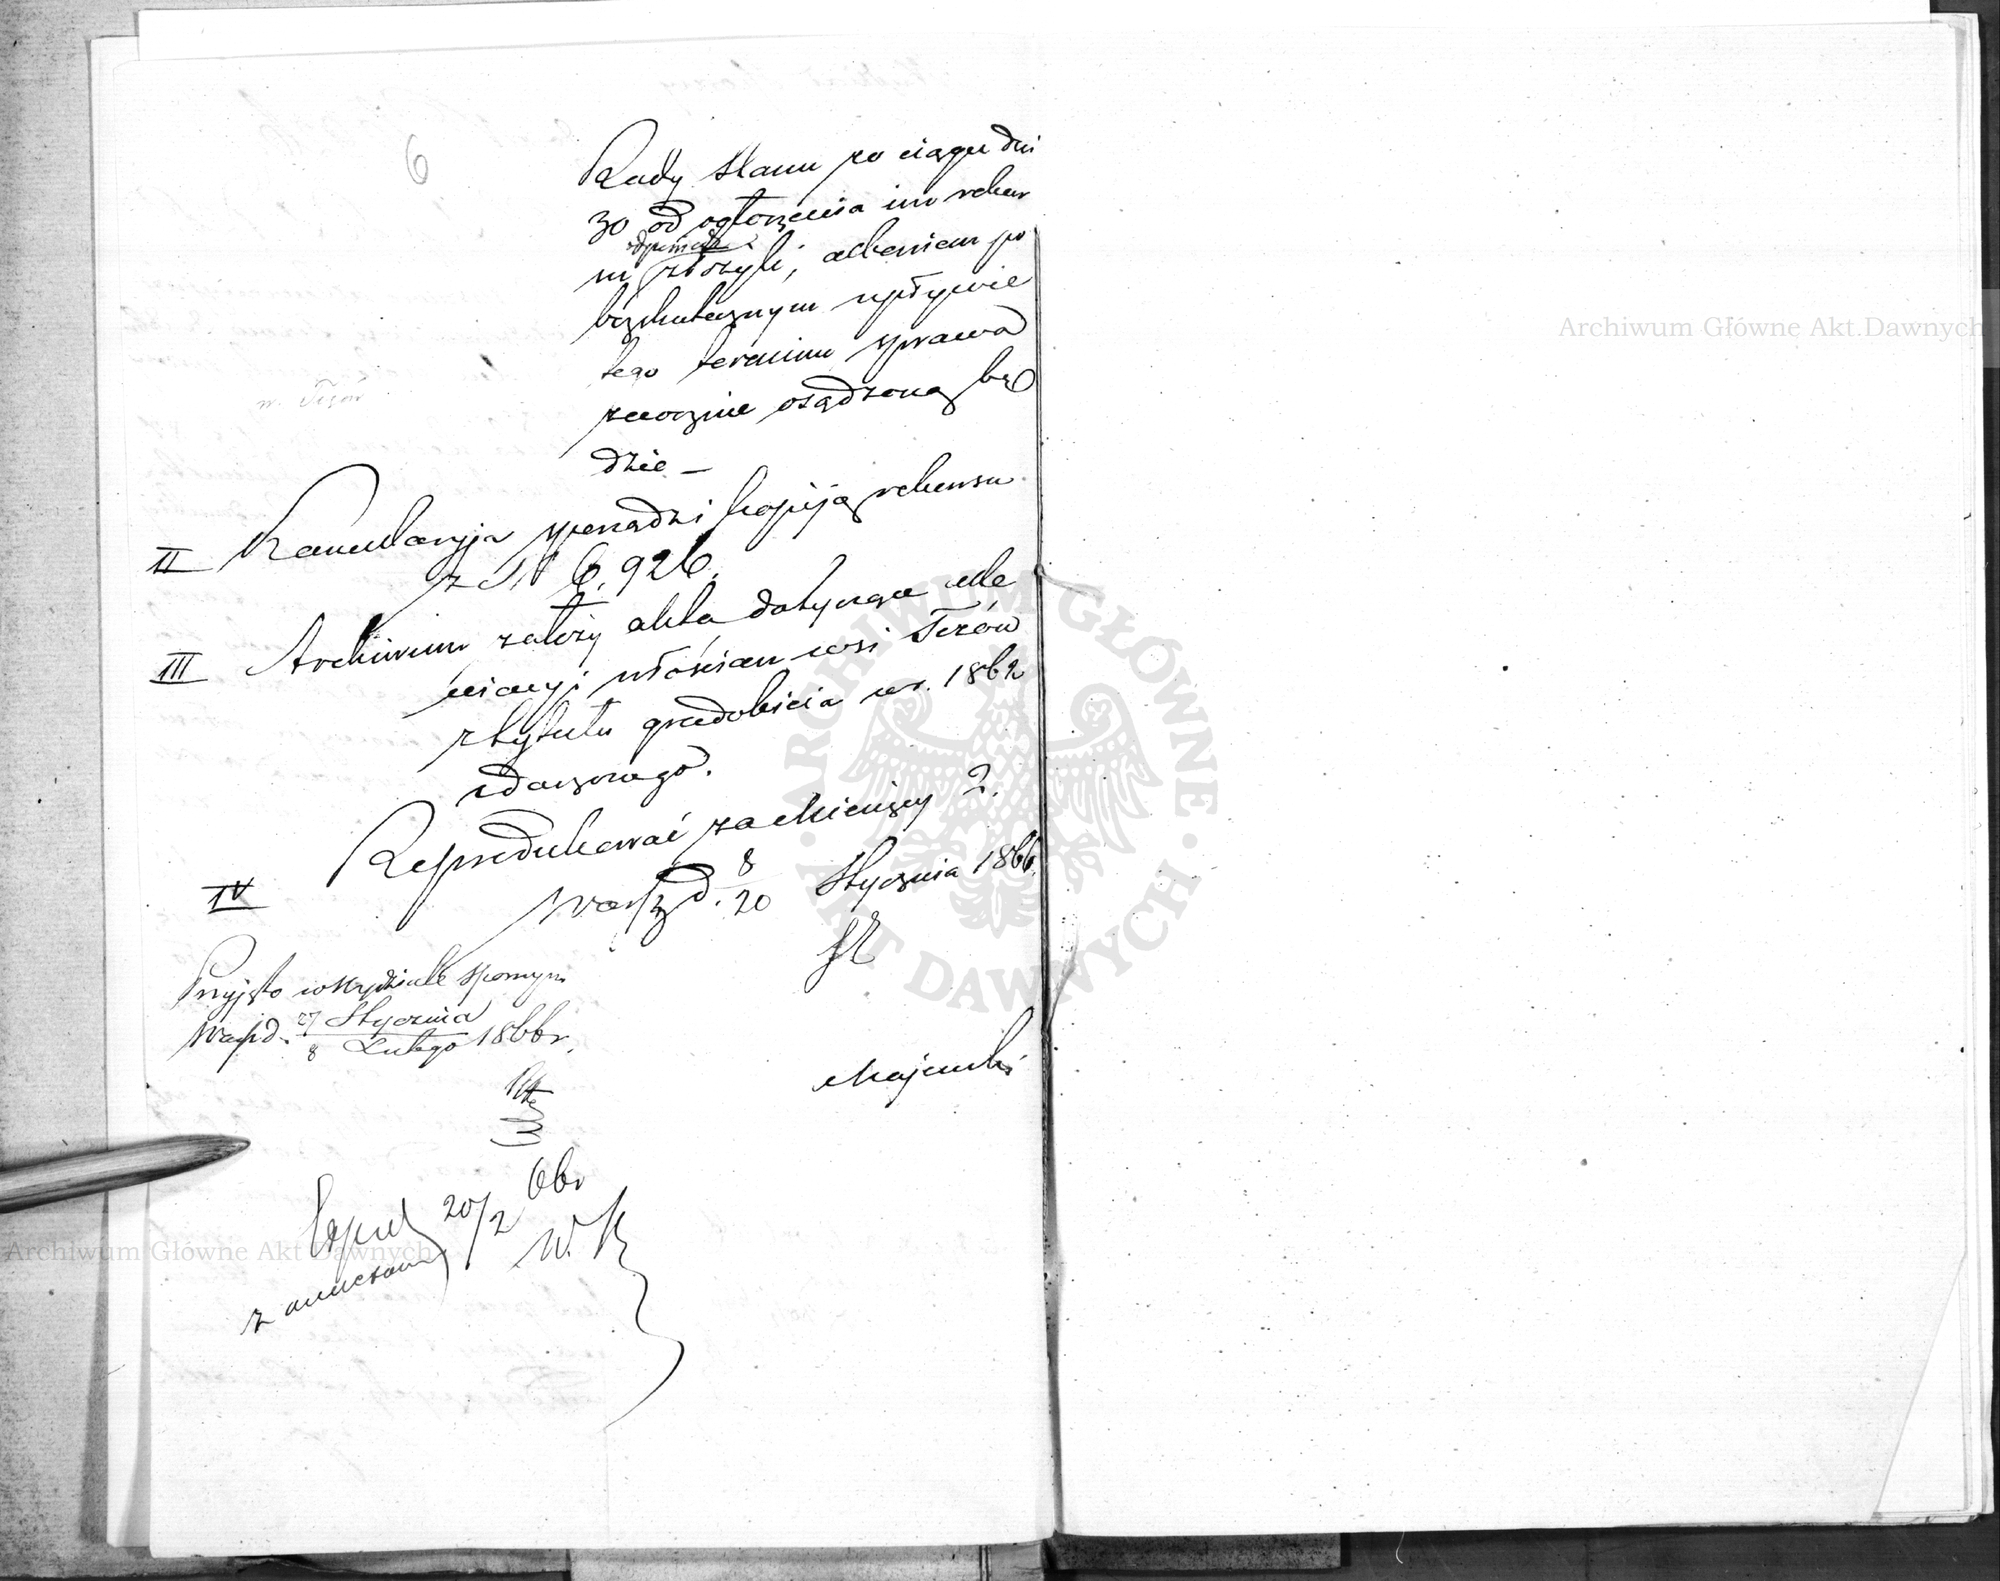 6
Rady Stanu po ciągu dni
30 od ogłoszenia im rekur
odpowiedź
su złożyli, albowiem po
bezskutecznym upływie
tego terminu sprawa
zaocznie osądzoną bę
dzie —
w. Tezów
II Kancellaryja sporządzi kopiją rekursu
z N 6,926.
III Archiwum założy akta dotyczące ule
włościan wsi Tezów
z tytułu gradobicia w r. 1862
zdarzonego.
IV Reprodukować za miesięcy 2.
Warsz d. 8/20 Stycznia 1866.
Majewski
Przyjęto w Wydziale Spornym
Warsz d. 27 Stycznia
8 Lutego 1866 r.
66 r
20/2
W. K
z annexami
Archiwum Główne Akt Dawnych
Archiwum Główne Akt Dawnych
ARCHIWUM GŁÓWNE AKT DAWNYCH